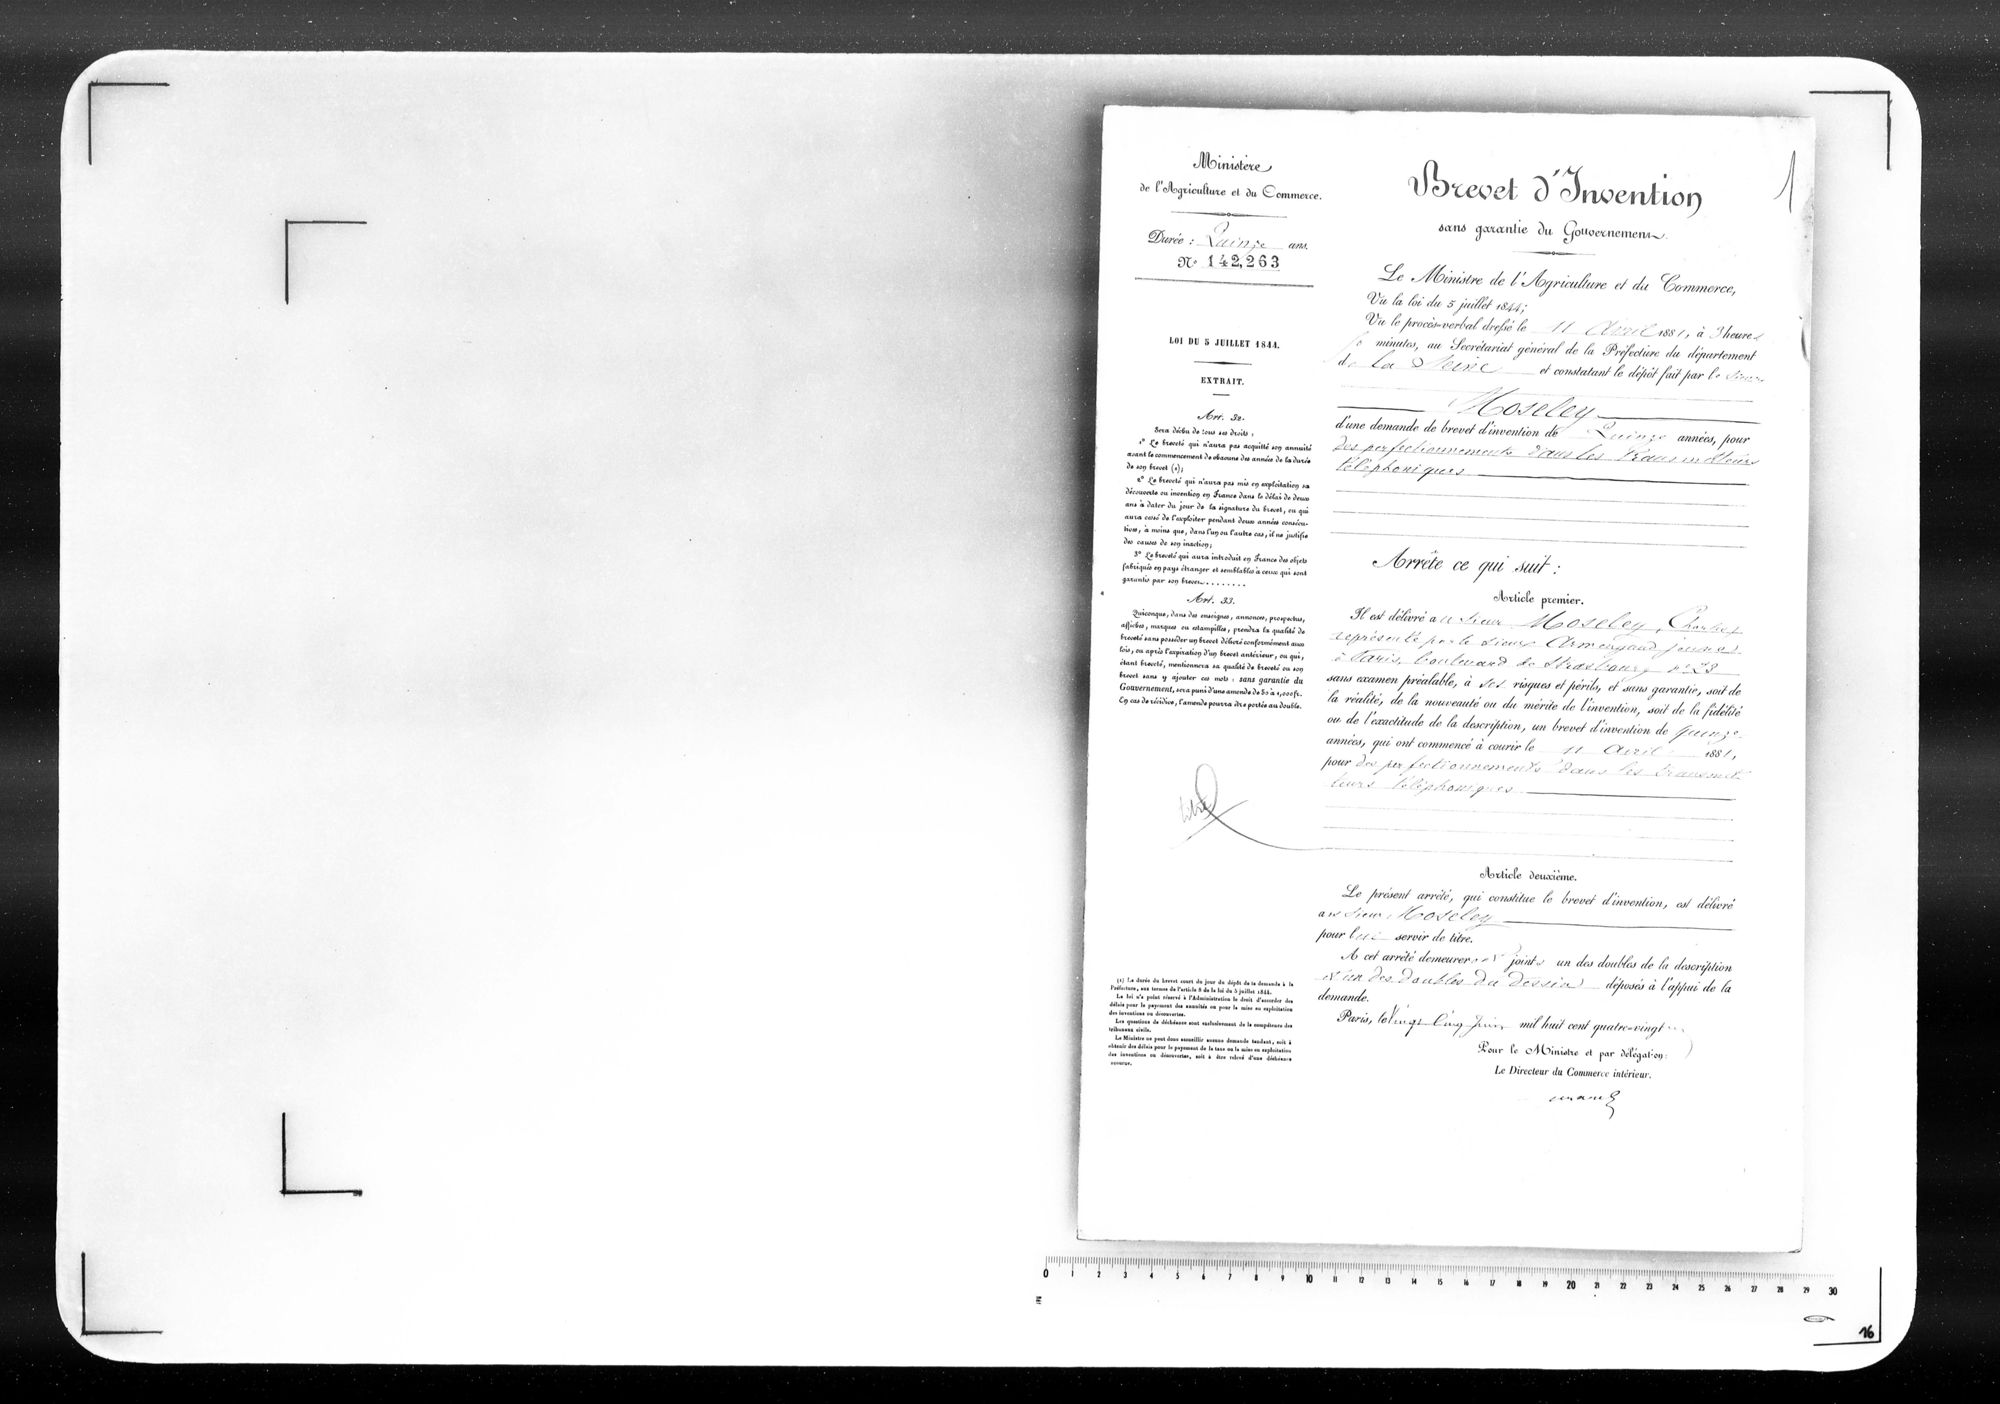 Ministère
de l'Agriculture et du Commerce.
Durée : Quinze ans.
N° 142,263
LOI DU 5 JUILLET 1844.
EXTRAIT.
Art. 32.
Sera déchu de tous ses droits :
1° Le breveté qui n'aura pas acquitté son annuité
avant le commencement de chacune des années de la durée
de son brevet (1);
2° Le breveté qui n'aura pas mis en exploitation sa
découverte ou invention en France dans le délai de deux
ans à dater du jour de la signature du brevet, ou qui
aura cessé de l'exploiter pendant deux années consécu-
tives, à moins que, dans l'un ou l'autre cas, il ne justifie
des causes de son inaction;
3° Le breveté qui aura introduit en France des objets
fabriqués en pays étranger et semblables à ceux qui sont
garantis par son brevet........
Art. 33.
Quiconque, dans des enseignes, annonces, prospectus,
affiches, marques ou estampilles, prendra la qualité de
breveté sans posséder un brevet délivré conformément aux
lois, ou après l'expiration d'un brevet antérieur, ou qui,
étant breveté, mentionnera sa qualité de breveté ou son
brevet sans y ajouter ces mots : sans garantie du
Gouvernement, sera puni d'une amende de 50 à 1,000 fr.
En cas de récidive, l'amende pourra être portée au double.
titre
(1) La durée du brevet court du jour du dépôt de la demande à la
Préfecture, aux termes de l'article 8 de la loi du 5 juillet 1844.
La loi n'a point réservé à l'Administration le droit d'accorder des
délais pour le payement des annuités ou pour la mise en exploitation
des inventions ou découvertes.
Les questions de déchéance sont exclusivement de la compétence des
tribunaux civils.
Le Ministre ne peut donc accueillir aucune demande tendant, soit à
obtenir des délais pour le payement de la taxe ou la mise en exploitation
des inventions ou découvertes, soit à être relevé d'une déchéance
encourue.
1
Brevet d'Invention
sans garantie du Gouvernement.
Le Ministre de l'Agriculture et du Commerce,
Vu la loi du 5 juillet 1844;
Vu le procès-verbal dressé le 11 Avril 1881, à 3 heures
minutes, au Secrétariat général de la Préfecture du département
de la Seine et constatant le dépôt fait par le Sieur
Moseley
d'une demande de brevet d'invention de Quinze années, pour
des perfectionnements dans les transmetteurs
téléphoniques
Arrête ce qui suit :
Article premier.
Il est délivré au Sieur Moseley, Charles,
représenté par le Sieur Armengaud jeune,
à Paris, boulevard de Strasbourg n° 23
sans examen préalable, à ses risques et périls, et sans garantie, soit de
la réalité, de la nouveauté ou du mérite de l'invention, soit de la fidélité
ou de l'exactitude de la description, un brevet d'invention de quinze
années, qui ont commencé à courir le 11 Avril 1881,
pour des perfectionnements dans les transmet-
teurs téléphoniques
Article deuxième.
Le présent arrêté, qui constitue le brevet d'invention, est délivré
au Sieur Moseley
pour lui servir de titre.
A cet arrêté demeureront joints un des doubles de la description
et un des doubles du dessin déposés à l'appui de la
demande.
Paris, le Vingt Cinq Juin mil huit cent quatre-vingt
Pour le Ministre et par délégation :
Le Directeur du Commerce intérieur.
0 1 2 3 4 5 6 7 8 9 10 11 12 13 14 15 16 17 18 19 20 21 22 23 24 25 26 27 28 29 30
16